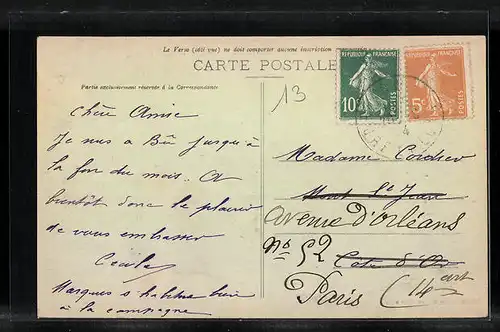 Le Verso (côté vue) ne doit comporter aucune inscription
CARTE POSTALE
Partie exclusivement réservée à la Correspondance
13
REPUBLIQUE FRANÇAISE
10c
POSTES
REPUBLIQUE FRANÇAISE
5c
POSTES
Chère Amie
Je suis à Bû jusqu'à
la fin du mois. A
bientôt donc le plaisir
de vous embrasser
Cécile
Marques s'habitue bien
à la campagne
Madame Cordier
Mont St Jean
avenue d'Orléans
No 52
Côte d'Or
Paris (14 art